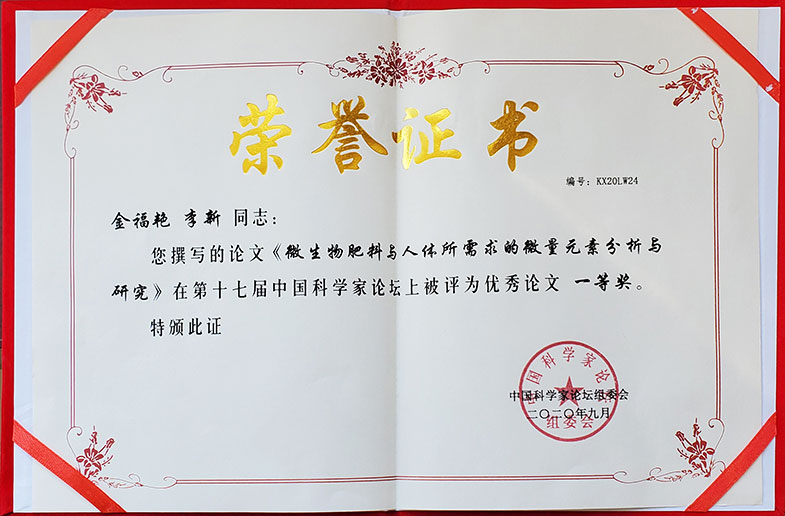 荣誉证书
编号：KX20LW24
金福艳 李新 同志：
您撰写的论文《微生物肥料与人体所需求的微量元素分析与
研究》在第十七届中国科学家论坛上被评为优秀论文 一等奖。
特颁此证
中国科学家论坛
组委会
中国科学家论坛组委会
二〇二〇年九月